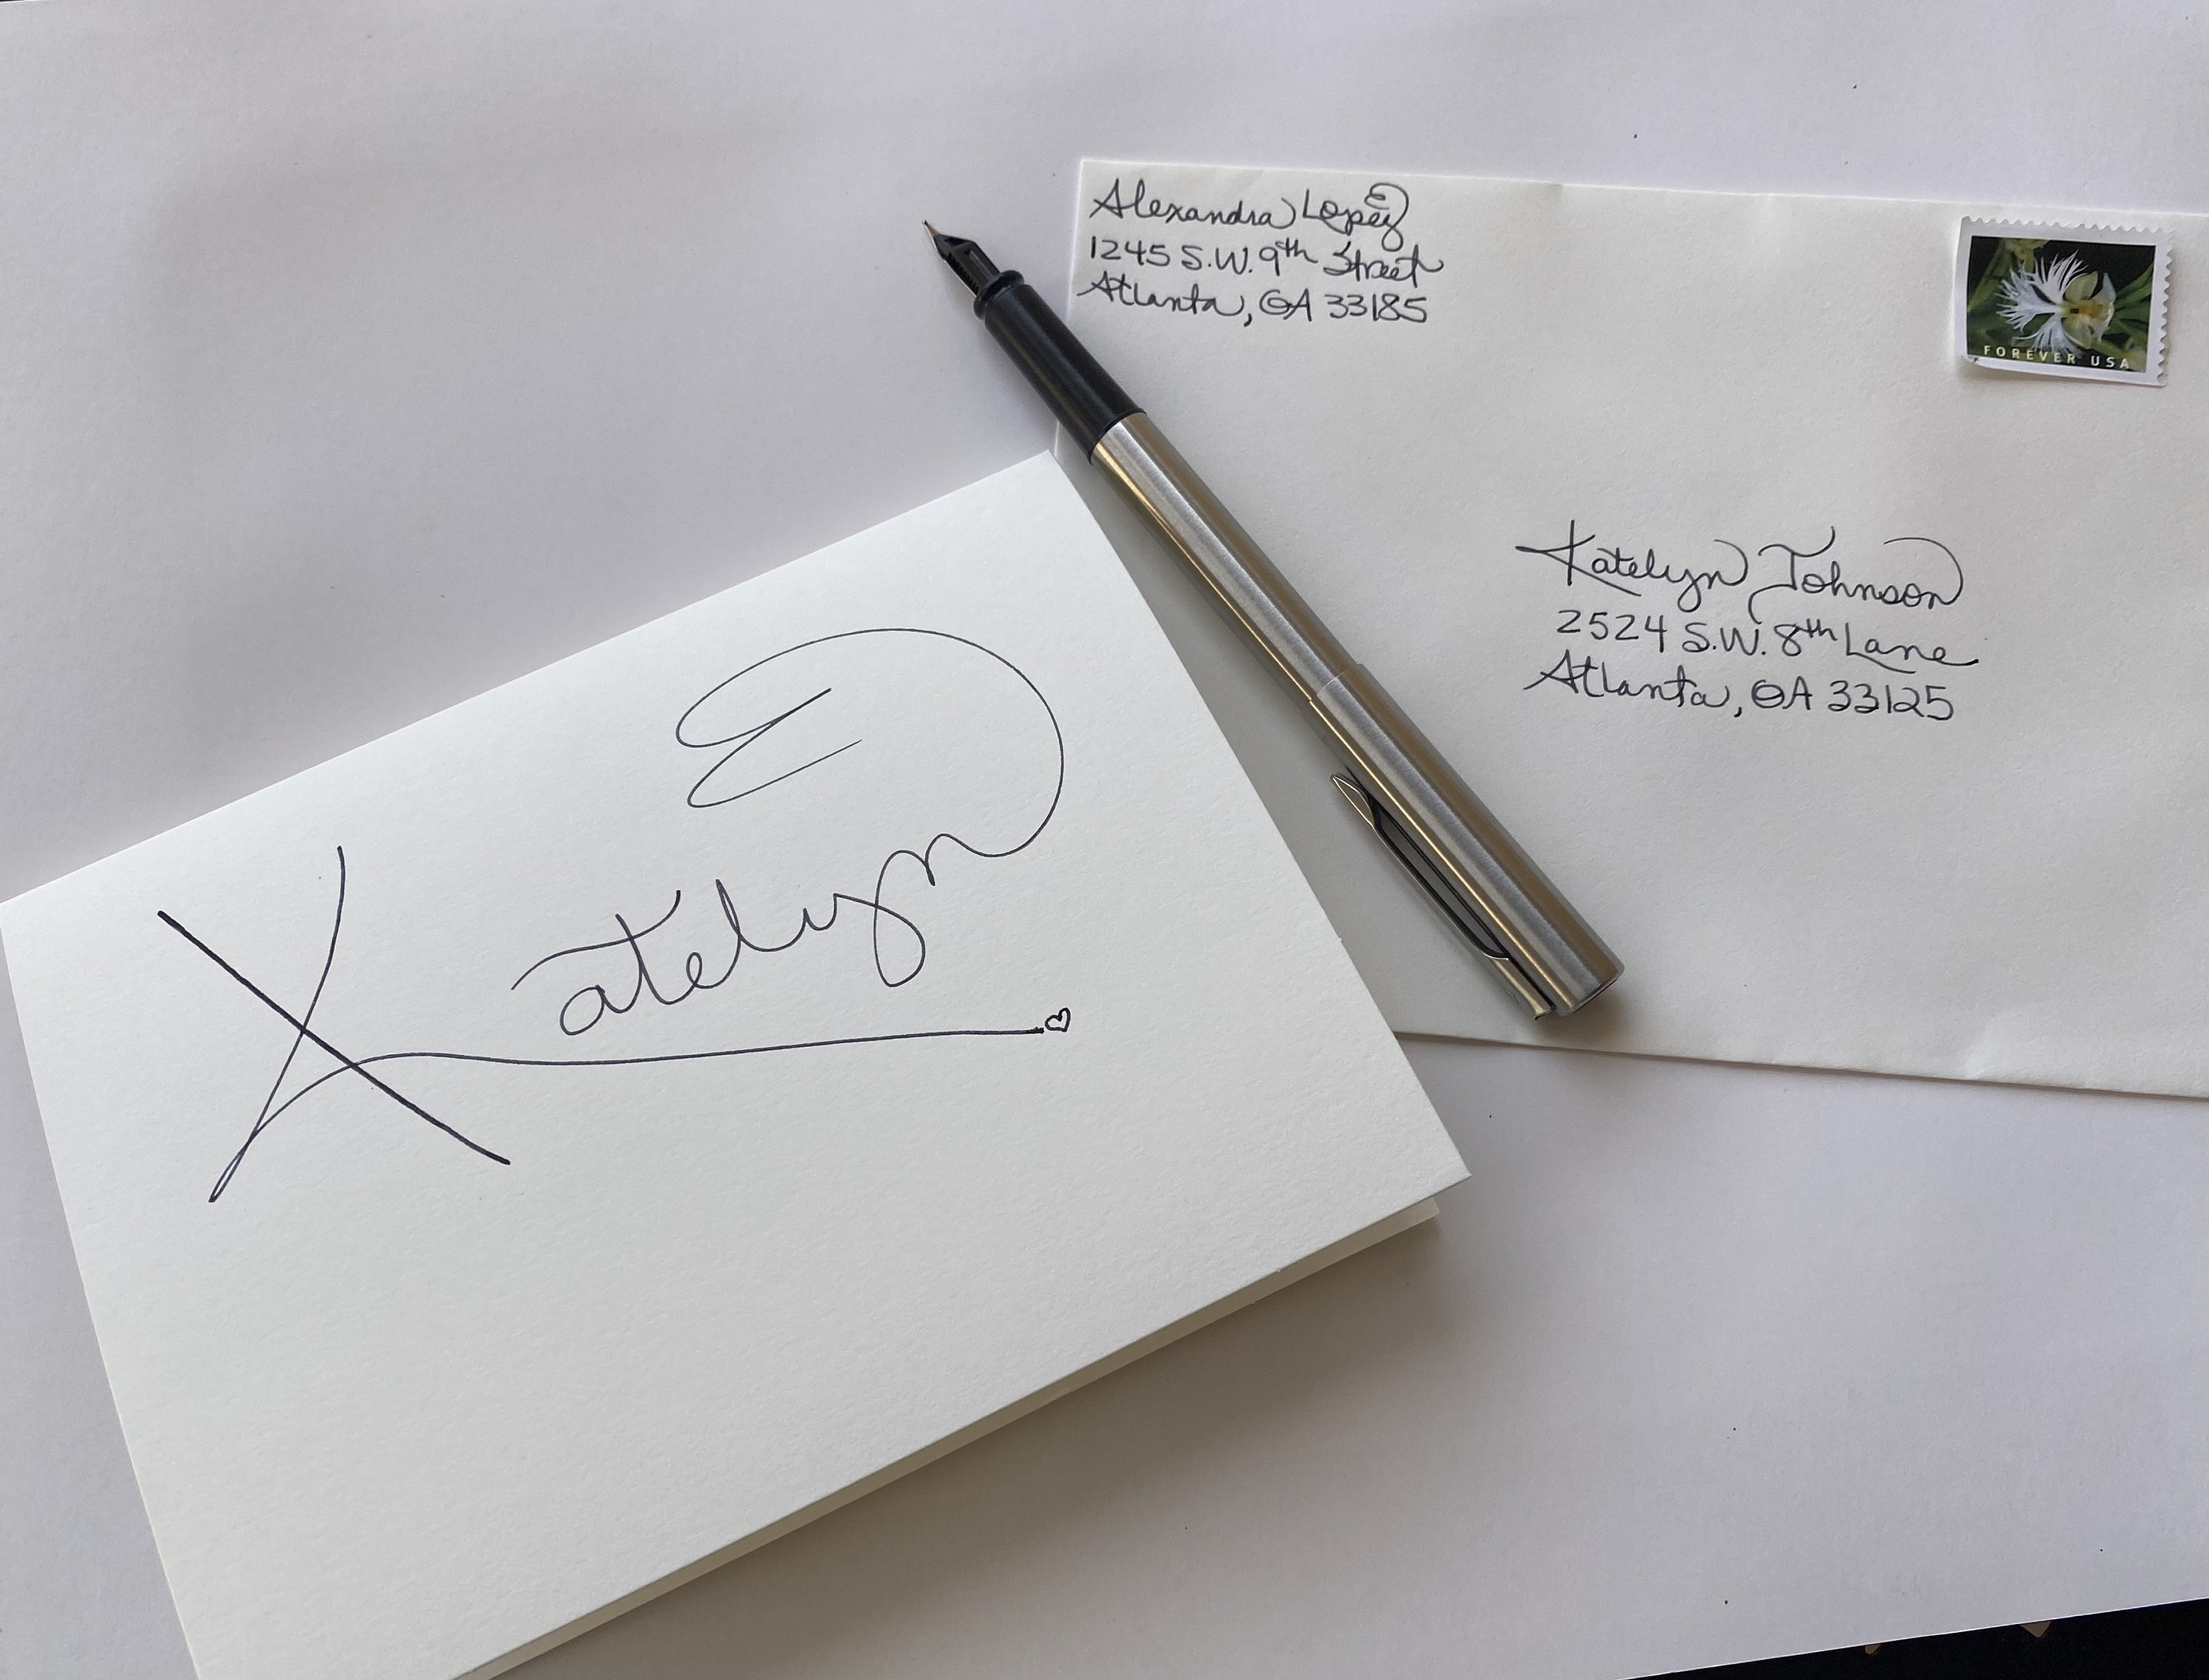 Alexandra Lopez
1245 S.W. 9th Street
Atlanta, GA 33185
FOREVER USA
Katelyn Johnson
2524 S.W. 8th Lane
Atlanta, GA 33125
Katelyn